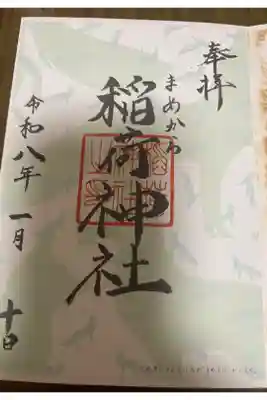 奉拝
まめがら
稲荷神社
令和八年 一月 十日